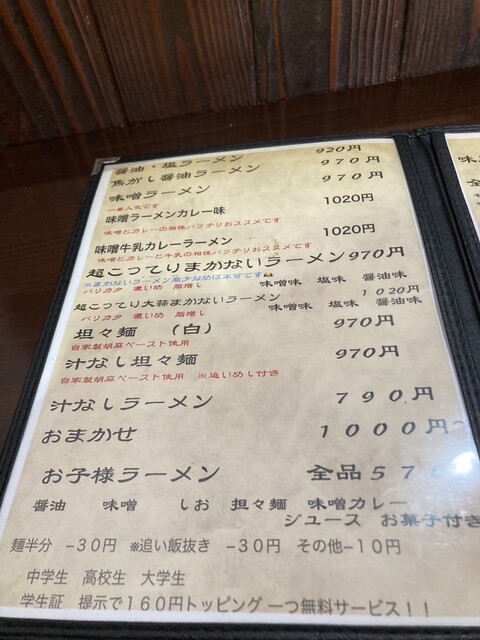 醤油・塩ラーメン 920円
焦がし醤油ラーメン 970円
味噌ラーメン 970円
一番人気です
味噌ラーメンカレー味 1020円
味噌とカレーの相性バッチリおススメです
味噌牛乳カレーラーメン 1020円
味噌とカレーと牛乳の相性バッチリおススメです
超こってりまかないラーメン 970円
※まかないラーメン脂少なめは本当です
バリカタ 濃いめ 脂増し 味噌味 塩味 醤油味
超こってり大蒜まかないラーメン 1020円
バリカタ 濃いめ 脂増し 味噌味 塩味 醤油味
坦々麺 (白) 970円
自家製胡麻ペースト使用
汁なし坦々麺 970円
自家製胡麻ペースト使用 ※追いめし付き
汁なしラーメン 790円
おまかせ 1000円
お子様ラーメン 全品57
醤油 味噌 しお 担々麺 味噌カレー
ジュース お菓子付き
麺半分 −30円 ※追い飯抜き −30円 その他−10円
中学生 高校生 大学生
学生証 提示で160円トッピング一つ無料サービス!!
味
全